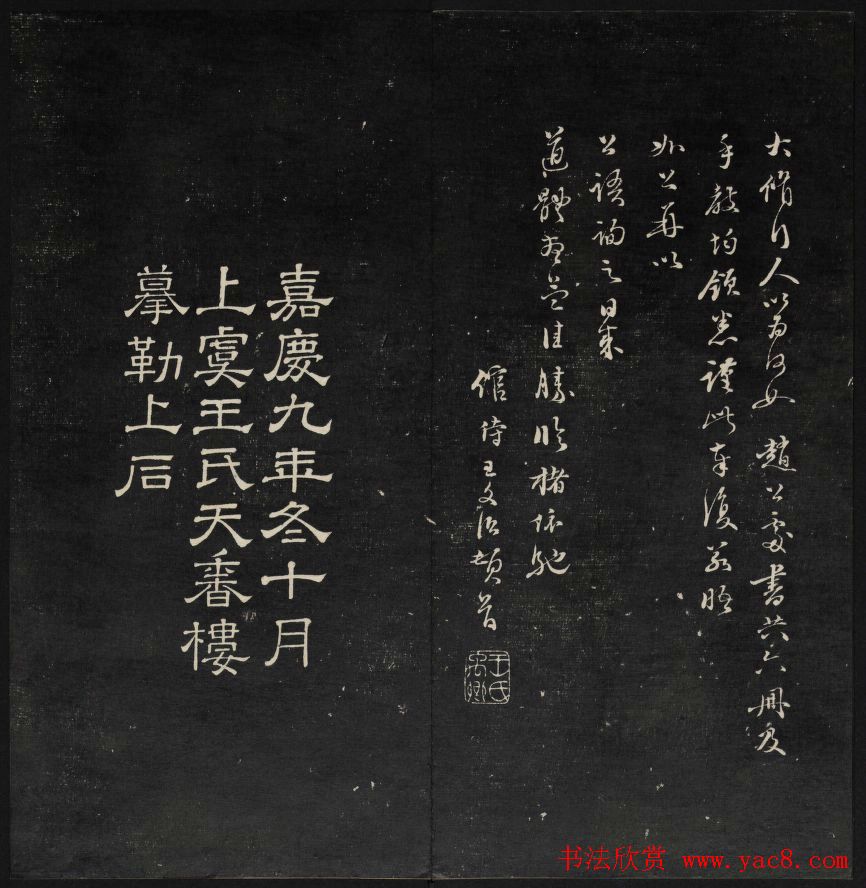 大脩行人以為何如 趙公處書共六冊及
手教均領悉謹此奉復若晤
公再以
公語詢之日來
道體想益佳勝臨楮依馳
館侍王文治頓首
王氏禹卿
嘉慶九年冬十月
上虞王氏天香樓
摹勒上石
书法欣赏 www.yac8.com